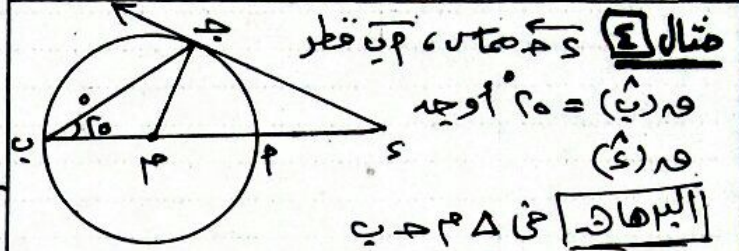 مثال ٤ ء جـ مماس ، أب قطر
ق(بَ) = ٢٥° أوجد
ق(ءَ)
البرهان فى Δ م جـ ب
جـ
٢٥°
ب
م
أ
ء